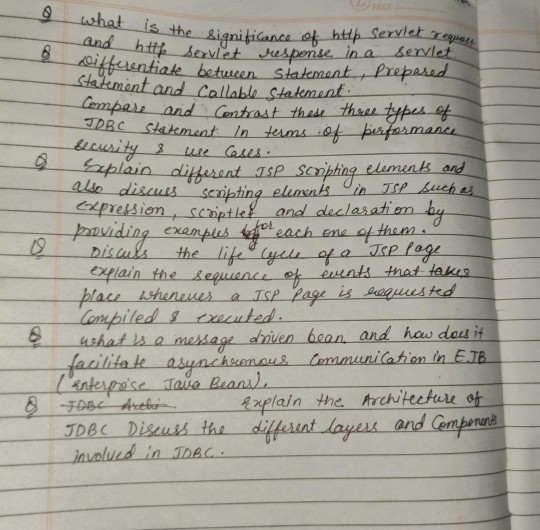 Q what is the significance of http Servlet request
and http Servlet response in a servlet
Q Differentiate between Statement, Prepared
Statement and Callable Statement.
Compare and Contrast these three types of
JDBC Statement in terms of performance
security & use Cases.
Q Explain different JSP Scripting elements and
also discuss scripting elements in JSP such as
expression, scriptlet and declaration by
providing examples for each one of them.
Q Discuss the life cycle of a JSP Page
explain the sequence of events that takes
place whenever a JSP Page is requested
Compiled & executed.
Q what is a message driven bean and how does it
facilitate asynchronous Communication in EJB
(Enterprise Java Beans).
Q JDBC Archi Explain the Architecture of
JDBC Discuss the different layers and Components
involved in JDBC.